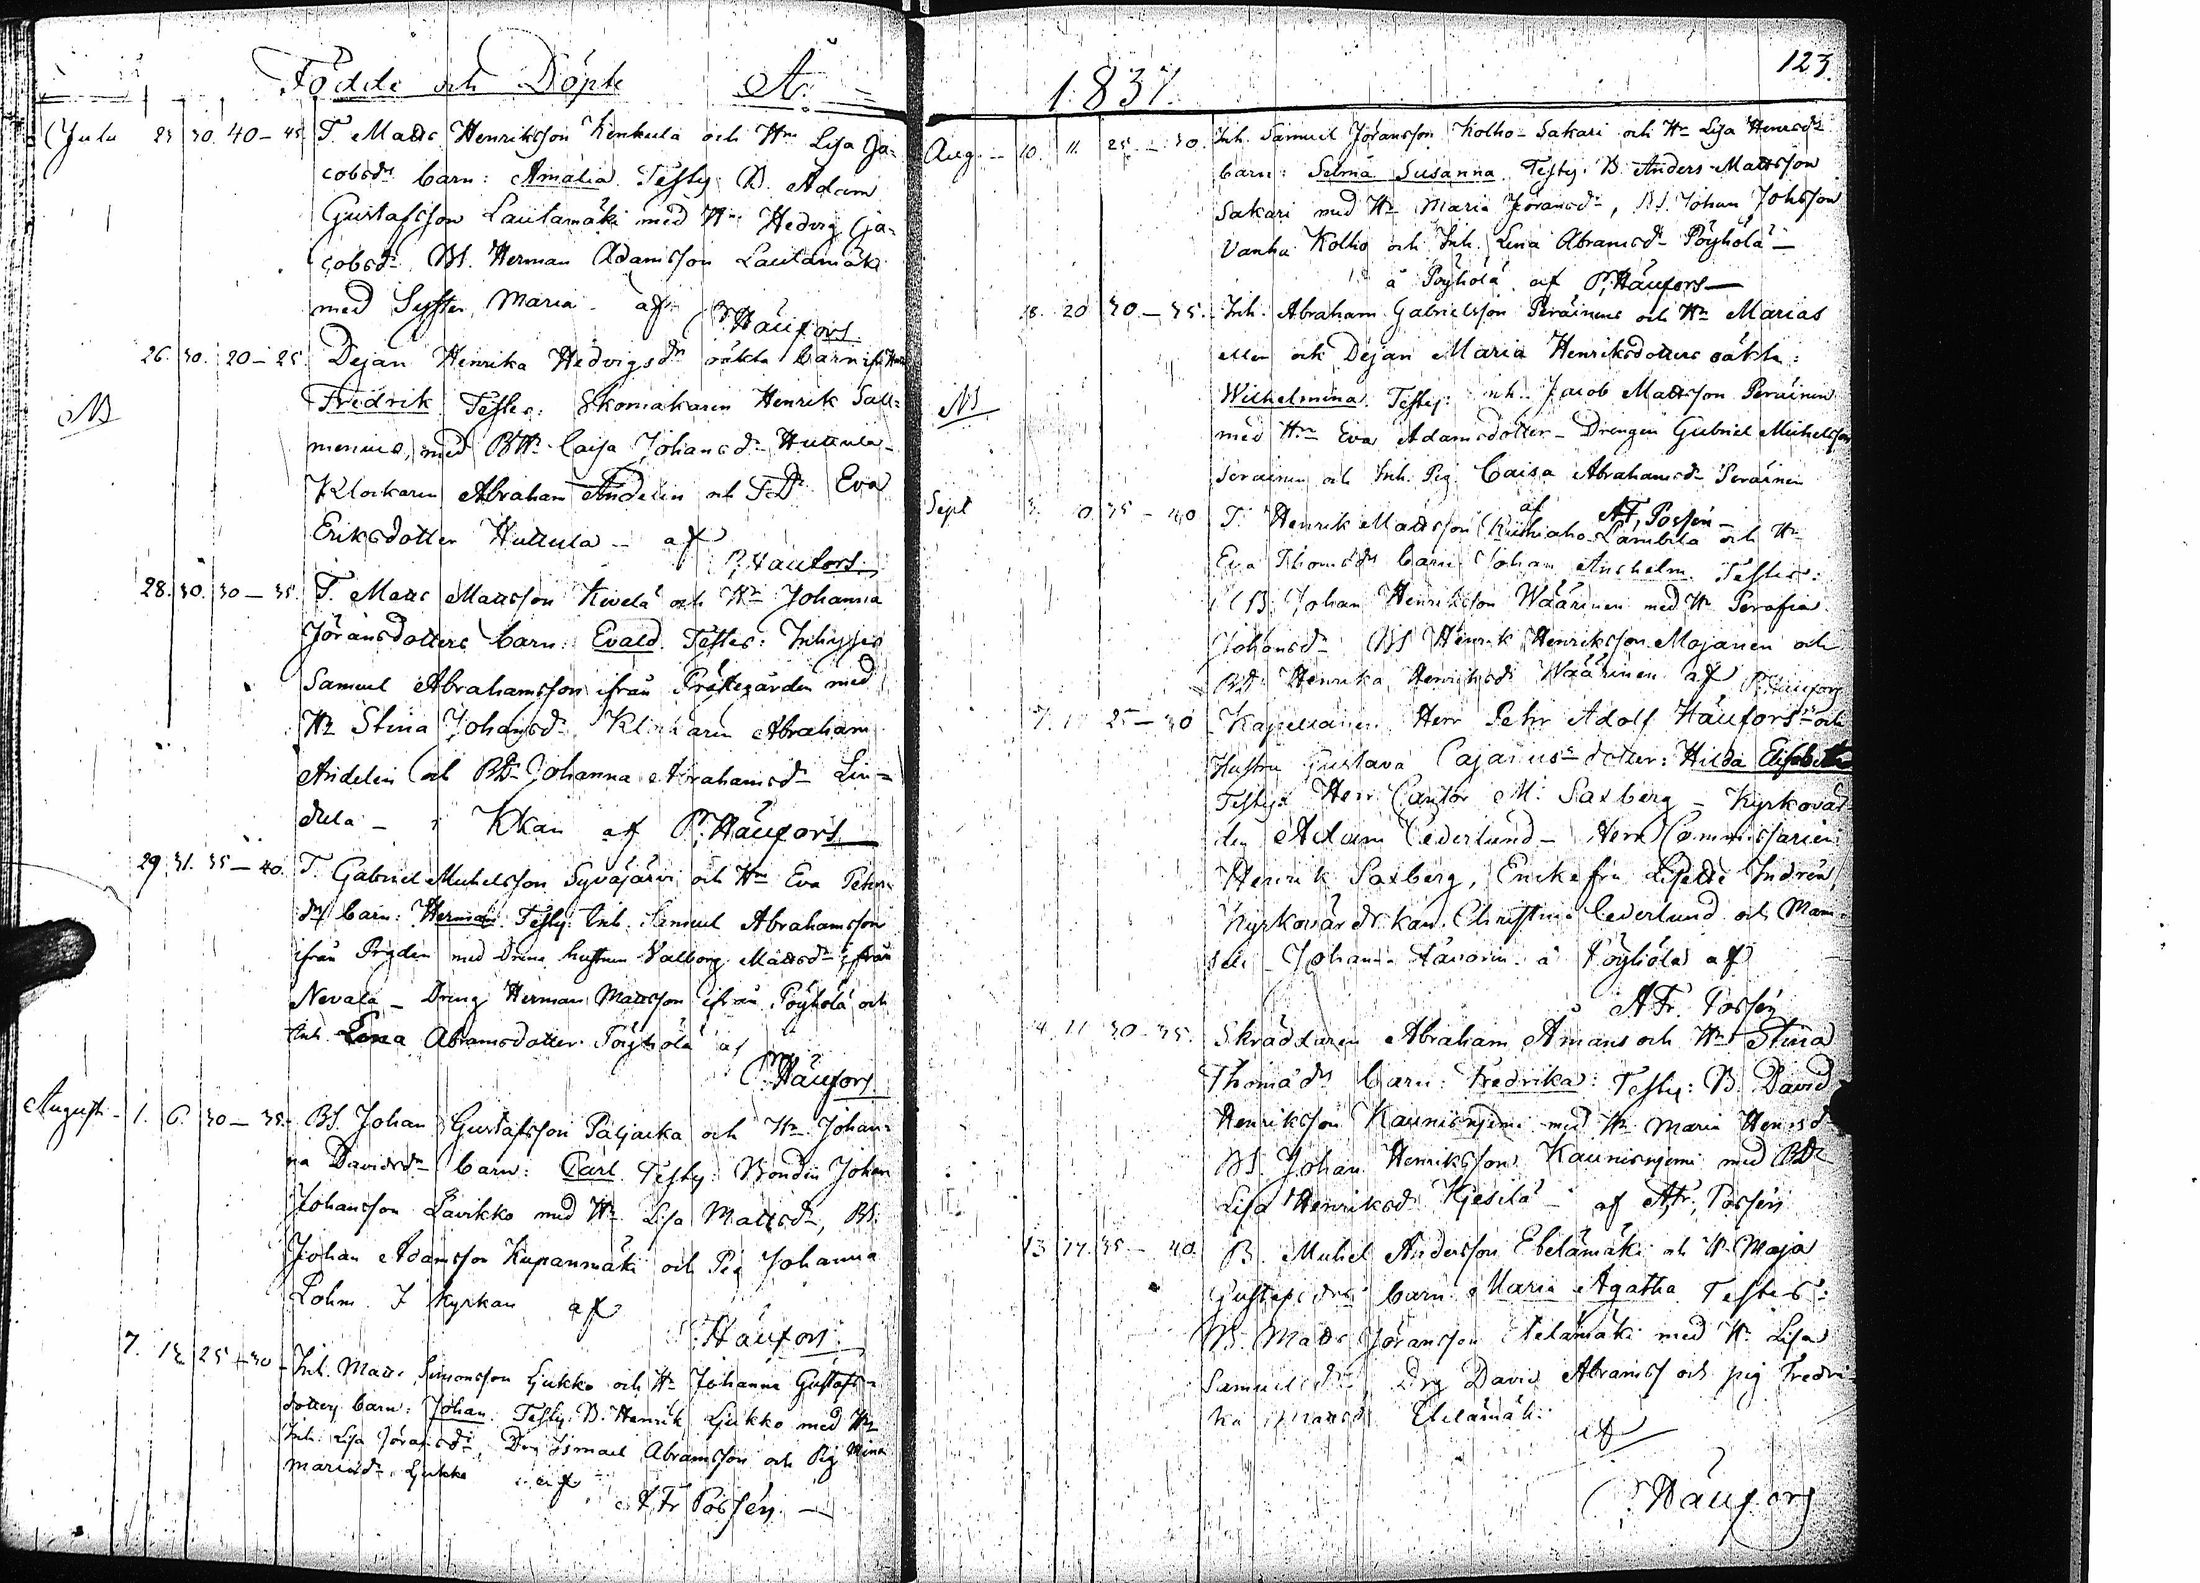 Födde och Döpte A:o
Julii 23 30. 40-45. T. Matts Henriksson Kenkula och Hu Lisa Ja-
cobsdr barn: Amalia. Testes: B. Adam
Gustafsson Lautamäki med Hu Hedvig Ja-
cobsdr BS. Herman Adamsson Lautamäki
med Syster Maria af
P. Häufors
26. 30. 20-25. Dejan Henrika Hedvigsdr oäkta barn
NB Fredrik Testes: Skomakaren Henrik Sall-
menius, med BHu Caisa Johansdr Huttula-
Klockaren Abraham Andelin och TDr Eva
Eriksdotter Huttula - af
P. Häufors
28. 30. 30-35. T. Matts Mattsson Kivelä och Hu Johanna
Jöransdotters barn: Evald. Testes: Inhyses
Samuel Abrahamsson ifrån Prästegården med
Hu Stina Johansdr Klockaren Abraham
Andelin och BDr Johanna Abrahamsdr Lin-
dula - i Kkan af P. Häufors
29 31. 35-40. T. Gabriel Michelsson Syväjärvi och Hu Eva Pehrs-
dr barn: Herman. Testes: Inh. Samuel Abrahamsson
ifrån Prgden med Dräng hustrun Valborg Mattsdr ifrån
Nevala - Dräng Herman Mattsson ifrån Pöyhölä och
Inh. Lena Abramsdotter Pöyhölä af
P. Häufors
August- 1. 6. 30-35. BS. Johan Gustafsson Paljacka och Hu Johan-
na Davidsdr barn: Carl. Testes: Bonden Johan
Johansson Lavikko med Hu Lisa Mattsdr, BS.
Johan Adamsson Kupanmäki och Pig Johanna
Bohm. I Kyrkan af
P. Häufors
7. 13. 25-30- Inh. Matts Simonsson Ljukko och Hu Johanna Gustafs-
dotters barn: Johan. Testes: B. Henrik Ljukko med Hu
Inh. Lisa Jöransdr, Drg Ismael Abramsson och Pig Mina
Mariasdr Ljukko af
A. Fr. Possén
1837. 123.
Aug. 10. 11. 25-30. Inh. Samuel Jöransson Kolho-Sakari och Hu Lisa Henrsdr
barn: Selma Susanna. Testes: B. Anders Mattsson
Sakari med Hu Maria Jöransdr, BS. Johan Johsson
Vanha Kolho och Inh. Lena Abramsdr Pöyhölä -
å Pöyhölä af P. Häufors
18. 20 30-35. Inh. Abraham Gabrielsson Peräinens och Hu Marias
eller ock Dejan Maria Henriksdotters oäkta:
NB Wilhelmina. Testes: inh. Jacob Mattsson Peräinen
med Hu Eva Adamsdotter - Drengen Gabriel Michelsson
Peräinen och Inh. Pig. Caisa Abrahamsdr Peräinen
af A. F. Possén -
Sept 3. 10. 35-40 T. Henrik Mattsson Riihiaho-Lambila och Hu
Eva Thomsdr barn Johan Anshelm. Testes:
B. Johan Henriksson Wäärinen med Hu Serafia
Johansdr BS Henrik Henriksson Mojanen och
BDr Henrika Henriksdr Wäärinen af P. Häufors
7. 11 25-30 Kapellanen Herr Petr Adolf Häufors och
Hustru Gustava Cajanus dotter: Hilda Elisabeth
Testes: Herr Cantor M. Saxberg - Kyrkovär-
den Adam Cederlund - Herr Commissarien
Henrik Saxberg, Enckefru Lisette Indrén,
Kyrkovärdskan Christina Cederlund och Mam-
sell Johanna å Pöyhölä af
A Fr. Possén
4. 11 30-35. Skräddaren Abraham Åmans och Hu Stina
Thomädr barn: Fredrika: Testes: B. David
Henriksson Kaunisniemi med Hu Maria Henrsdr
BS. Johan Henriksson Kaunisniemi med BDr
Lisa Henriksdr Kjesilä - af A, Fr, Possén
13 17. 35-40. B. Michel Andersson Etelämäki och Hu Maja
Gustafsdrs barn Maria Agatha Testes:
B. Matts Jöransson Etelämäki med Hu Lisa
Samuelsdr, Drg David Abramss och pig Fredri-
ka Mattsdr Etelämäki
af
P. Häufors